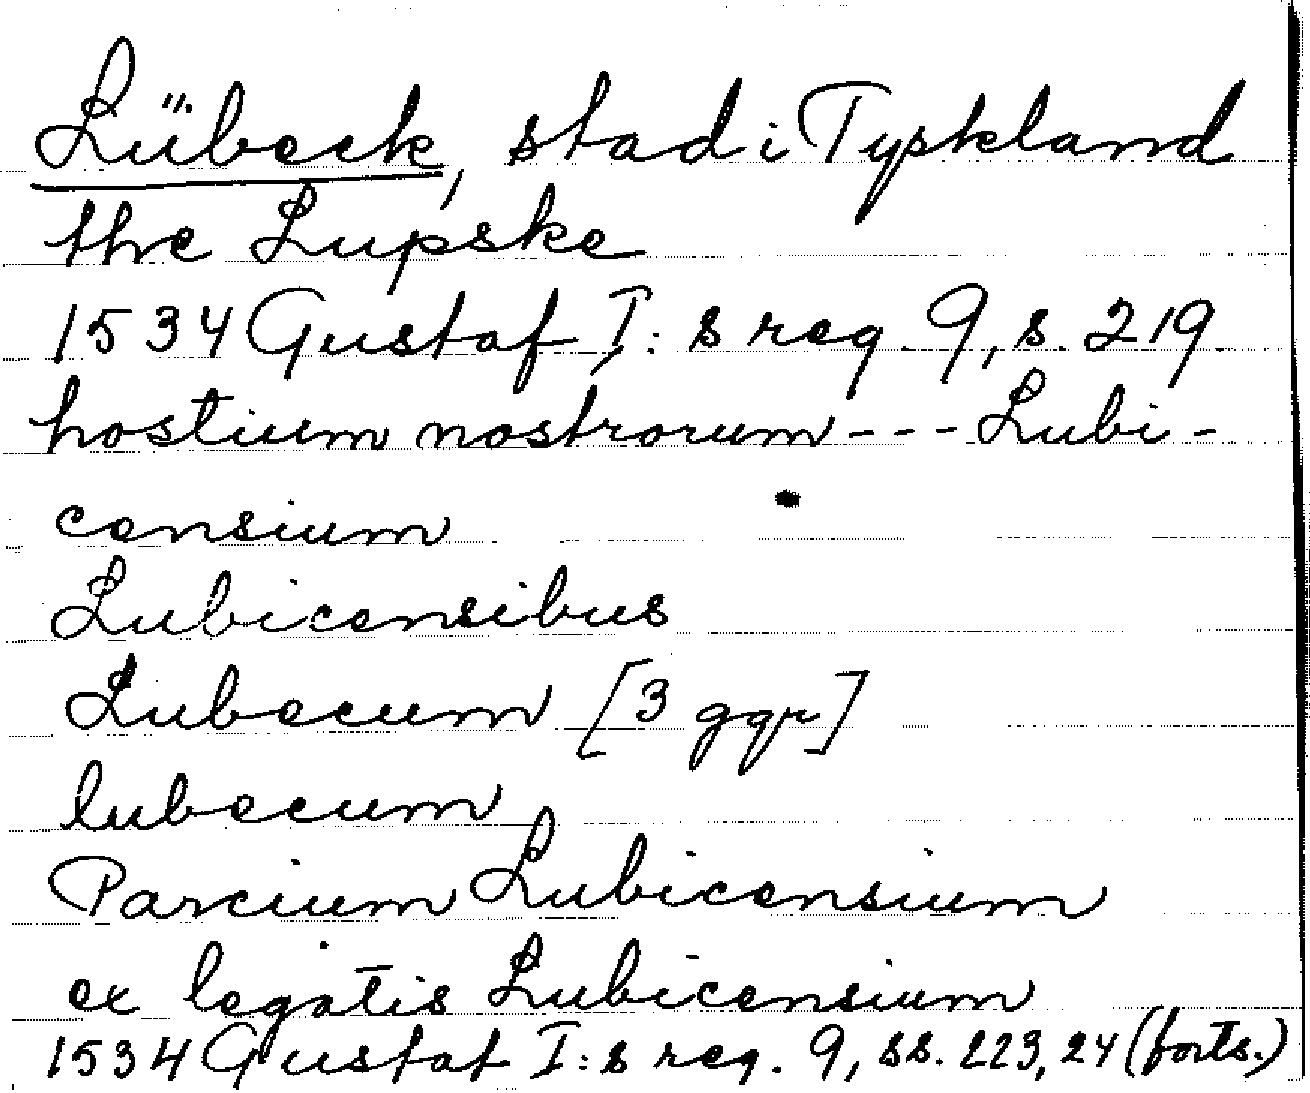 Lübeck, stad i Tyskland
the Lupske
1534 Gustaf I:s reg. 9, s. 219
hostium nostrorum --- Lubi-
censium
Lubicensibus
Lubecum [3 ggr]
lubecum
Parcium Lubicensium
ex legatis Lubicensium
1534 Gustaf I:s reg. 9, ss. 223, 24 (forts.)